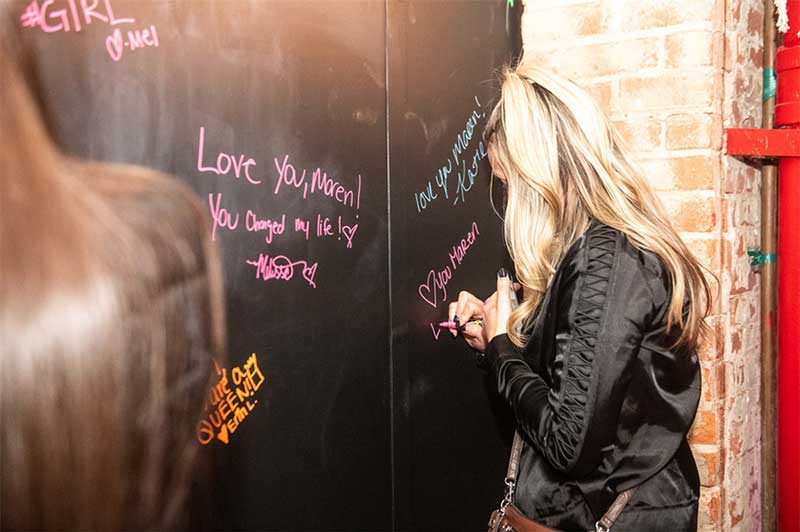 #GIRL
♡-Mel
Love You, Maren!
You Changed my life!♡
Melissa ♡
love you Maren!
-Katie
♡ you Maren
L
are a
QUEEN!
♥ Erin L.